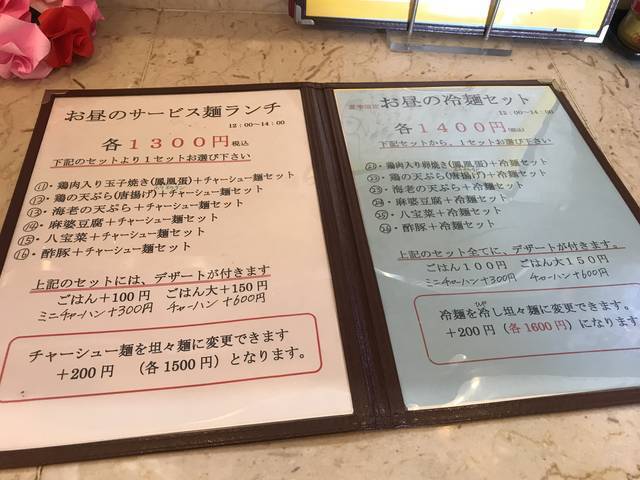 お昼のサービス麺ランチ
12:00～14:00
各1300円税込
下記のセットより1セットお選び下さい
⑪・鶏肉入り玉子焼き(鳳凰蛋)+チャーシュー麺セット
⑫・鶏の天ぷら(唐揚げ)+チャーシュー麺セット
⑬・海老の天ぷら+チャーシュー麺セット
⑭・麻婆豆腐+チャーシュー麺セット
⑮・八宝菜+チャーシュー麺セット
⑯・酢豚+チャーシュー麺セット
上記のセットには、デザートが付きます
ごはん+100円 ごはん大+150円
ミニチャーハン+300円 チャーハン+600円
チャーシュー麺を坦々麺に変更できます
+200円 (各1500円)となります。
夏季限定 お昼の冷麺セット
12:00～14:00
各1400円(税込)
下記セットから、1セットお選び下さい
㉑・鶏肉入り卵焼き(鳳凰蛋)+冷麺セット
㉒・鶏の天ぷら(唐揚げ)+冷麺セット
㉓・海老の天ぷら+冷麺セット
㉔・麻婆豆腐+冷麺セット
㉕・八宝菜+冷麺セット
㉖・酢豚+冷麺セット
上記のセット全てに、デザートが付きます。
ごはん100円 ごはん大150円
ミニチャーハン+300円 チャーハン+600円
冷麺を冷し坦々麺に変更できます。
+200円(各1600円)になります